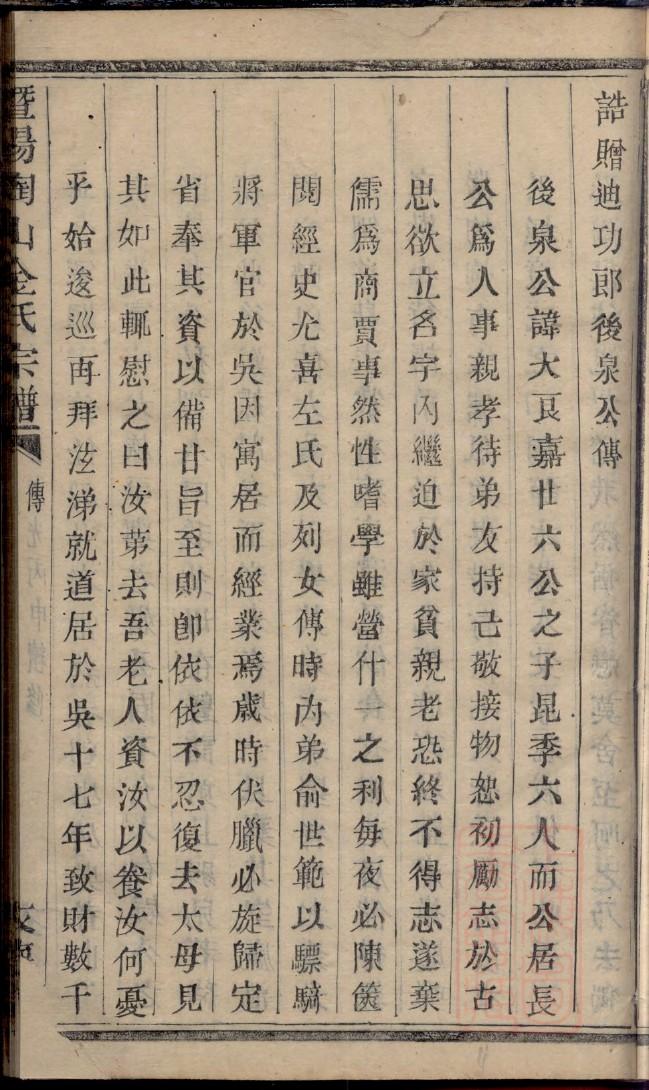 誥贈迪功郎後泉公傳
後泉公諱大良嘉廿六公之子昆季六人而公居長
公爲人事親孝待弟友持己敬接物恕初勵志於古
思欲立名宇內繼迫於家貧親老恐終不得志遂棄
儒爲商賈事然性嗜學雖營什一之利每夜必陳篋
閱經史尤喜左氏及列女傳時內弟俞世範以驃騎
將軍官於吳因寓居而經業焉歲時伏臘必旋歸定
省奉其資以備甘旨至則卽依依不忍復去太母見
其如此輒慰之曰汝苐去吾老人資汝以養汝何憂
乎始逡巡再拜泣涕就道居於吳十七年致財數千
暨陽陶山金氏宗譜
傳